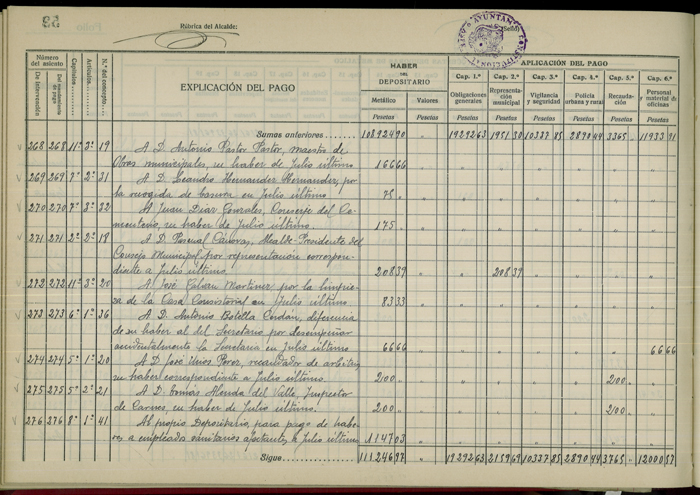 Rúbrica del Alcalde:
(Sello)
AYUNTAMIENTO CONSTITUCIONAL
Número del asiento
De intervención
Del mandamiento de pago
Capítulos
Artículos
N.º del concepto
EXPLICACIÓN DEL PAGO
HABER DEL DEPOSITARIO
Metálico
Valores
Pesetas
Pesetas
APLICACIÓN DEL PAGO
Cap. 1.º Cap. 2.º Cap. 3.º Cap. 4.º Cap. 5.º Cap. 6.º
Obligaciones generales
Representación municipal
Vigilancia y seguridad
Policía urbana y rural
Recaudación
Personal y material de oficinas
Pesetas Pesetas Pesetas Pesetas Pesetas Pesetas
Sumas anteriores 108924 90 19292 63 1951 30 10337 85 2890 44 3365 11933 91
268 268 11º 3º 19 A D. Antonio Pastor Pastor, maestro de
Obras municipales, su haber de Julio último 166 66
269 269 7º 2º 31 A D. Leandro Hernander Hernander, por
la recogida de basura en Julio último 75
270 270 7º 3º 32 A Juan Diaz Gonzales, Conserje del Ce-
menterio, su haber de Julio último. 175
271 271 2º 2º 18 A D. Pascual Cánovas, Alcalde-Presidente del
Consejo Municipal por representación correspon-
diente a Julio último. 208 39 208 39
272 272 11º 3º 20 A José Galvan Martinez por la limpie-
za de la Casa Consistorial en Julio último 83 33
273 273 6º 1º 36 A D. Antonio Botella Cerdán, diferencia
de su haber al del Secretario por desempeñar
accidentalmente la Secretaria en Julio último 66 66 66 66
274 274 5º 1º 20 A D. José Perez, recaudador de arbitrios
su haber correspondiente a Julio último 200 200
275 275 5º 2º 21 A D. Tomás Alenda del Valle, Inspector
de Carnes, su haber de Julio último. 200 200
276 276 8º 1º 41 Al propio Depositario, para pago de habe-
res a empleados sanitarios, Julio último 1147 03
Sigue 111246 97 19292 63 2159 69 10337 85 2890 44 3765 12000 57